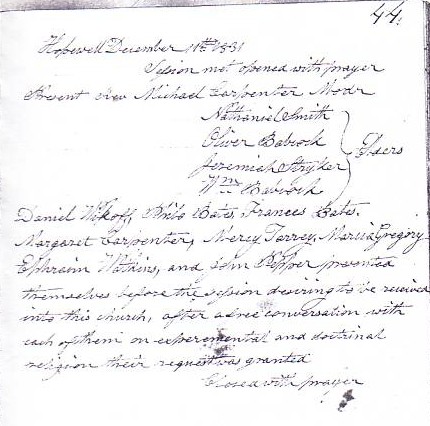 44.
Hopewell December 11th 1831
Session met opened with prayer
Present Rev Michael Carpenter Modr
Nathaniel Smith
Oliver Babcock
Jeremiah Stryker
Wm Babcock
Elders
Daniel Wikoff, Bates, Frances Bates.
Margaret Carpenter, Mercy Torrey, Maria Gregory
Ephraim Watkins, and John Pepper presented
themselves before the session desiring to be received
into this church, after a free conversation with
each of them on experemental and doctrinal
religion their request was granted
Closed with prayer